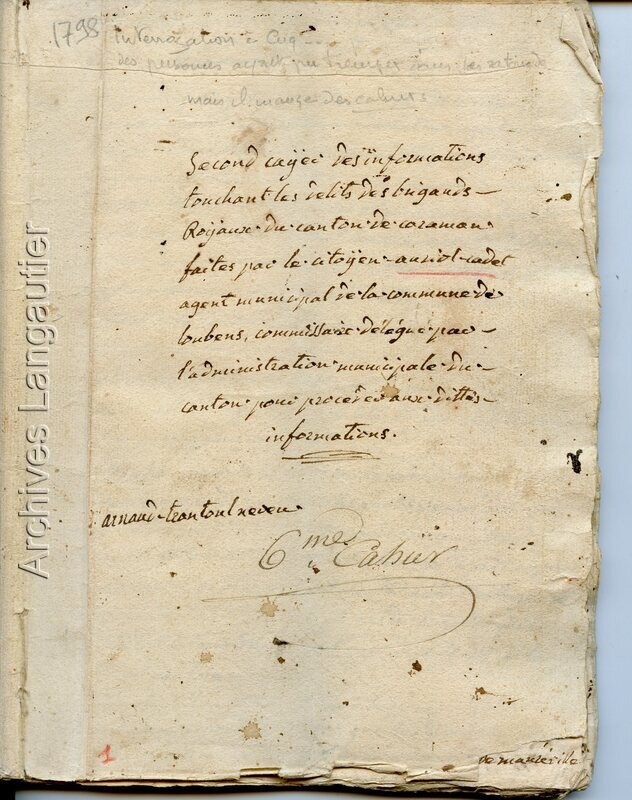 1798 interrogation à Cuq
des personnes ayant pu
mais il manque des cahiers
Second cayéé des informations
touchant les delits des brigands
Royaux du canton de caraman
faites par le citoyen auriol cadet
agent municipal de la commune de
loubens, commissaire délégué par
l'administration municipale du
canton pour procéder aux dittes
informations.
arnaud
6me Cahier
1
de manréville
Archives Langautier